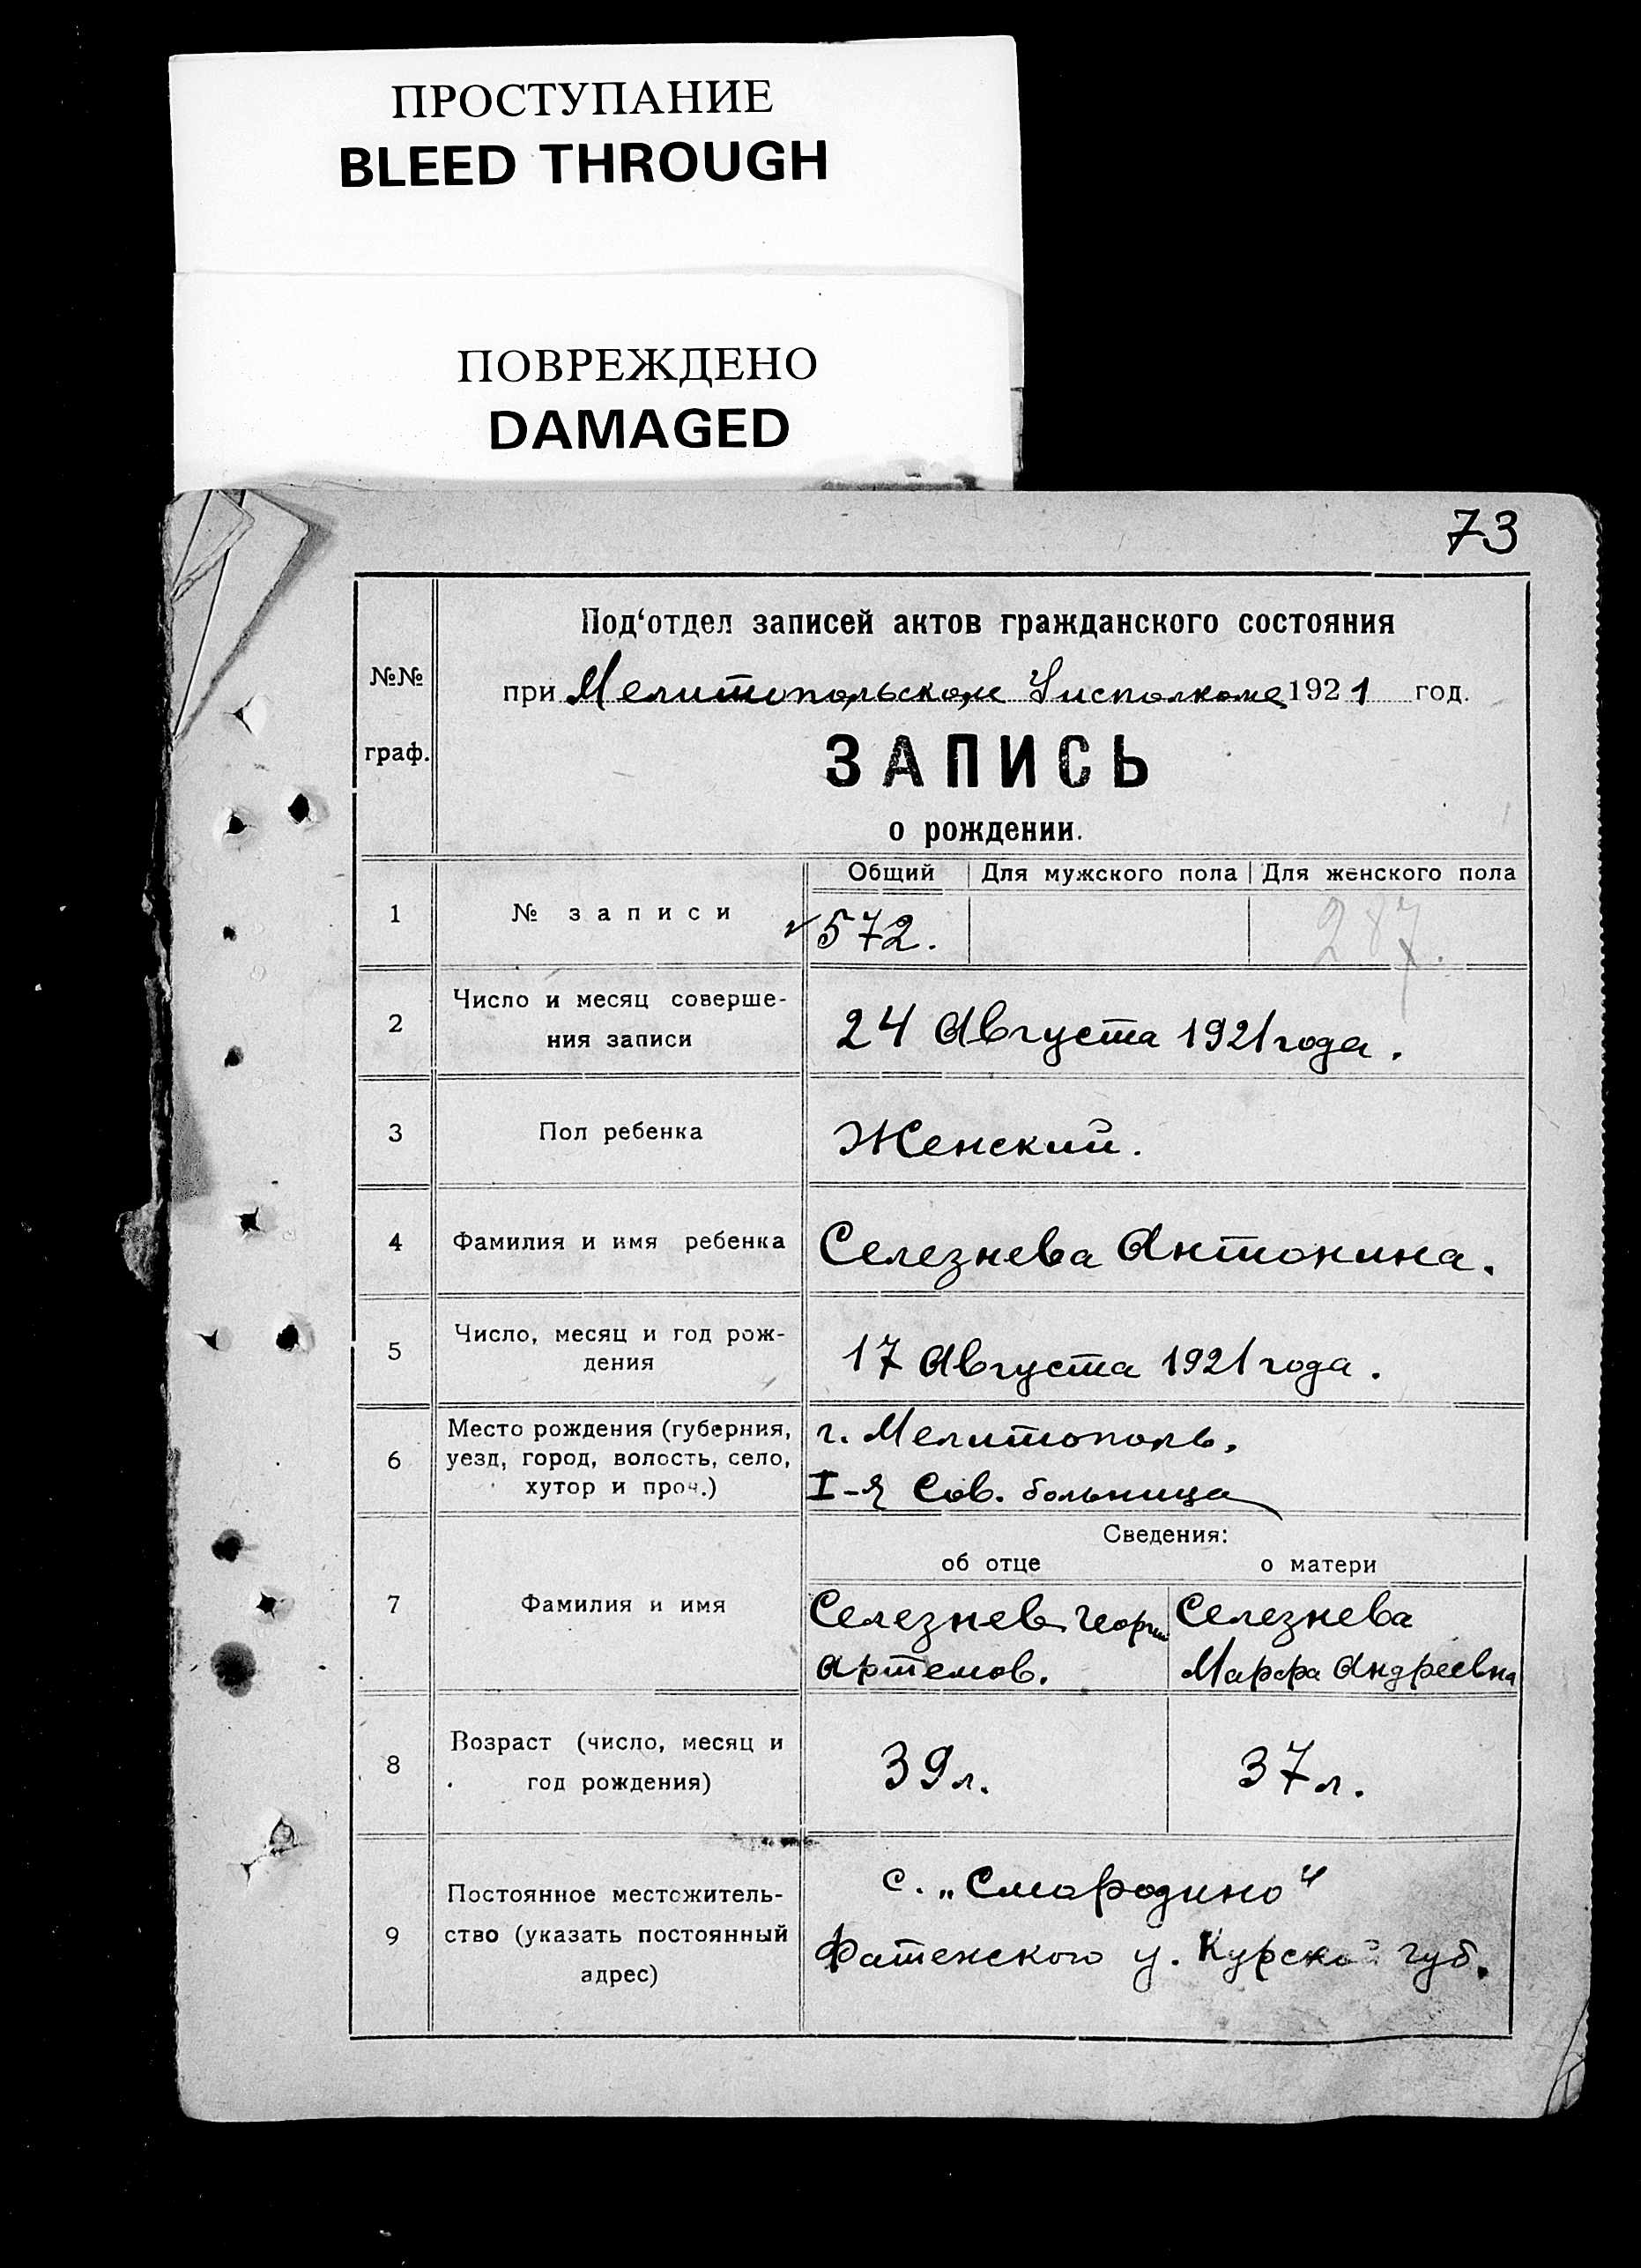 ПРОСТУПАНИЕ
BLEED THROUGH
ПОВРЕЖДЕНО
DAMAGED
73
№№
граф.
Под'отдел записей актов гражданского состояния
при Мелитопольском Уисполкоме 1921 год.
ЗАПИСЬ
о рождении.
Общий Для мужского пола Для женского пола
1 № записи 572. 287.
2 Число и месяц соверше-
ния записи
24 Августа 1921 года.
3 Пол ребенка Женский.
4 Фамилия и имя ребенка Селезнева Антонина.
5 Число, месяц и год рож-
дения
17 Августа 1921 года.
6 Место рождения (губерния,
уезд, город, волость, село,
хутор и проч.)
г. Мелитополь.
I-я Сов. больница
Сведения:
об отце о матери
7 Фамилия и имя
Селезнев Георгий
Артемов.
Селезнева
Марфа Андреевна
8 Возраст (число, месяц и
год рождения)
39 л. 37 л.
9 Постоянное местожитель-
ство (указать постоянный
адрес)
с. „Смородино"
Фатежского у. Курской губ.